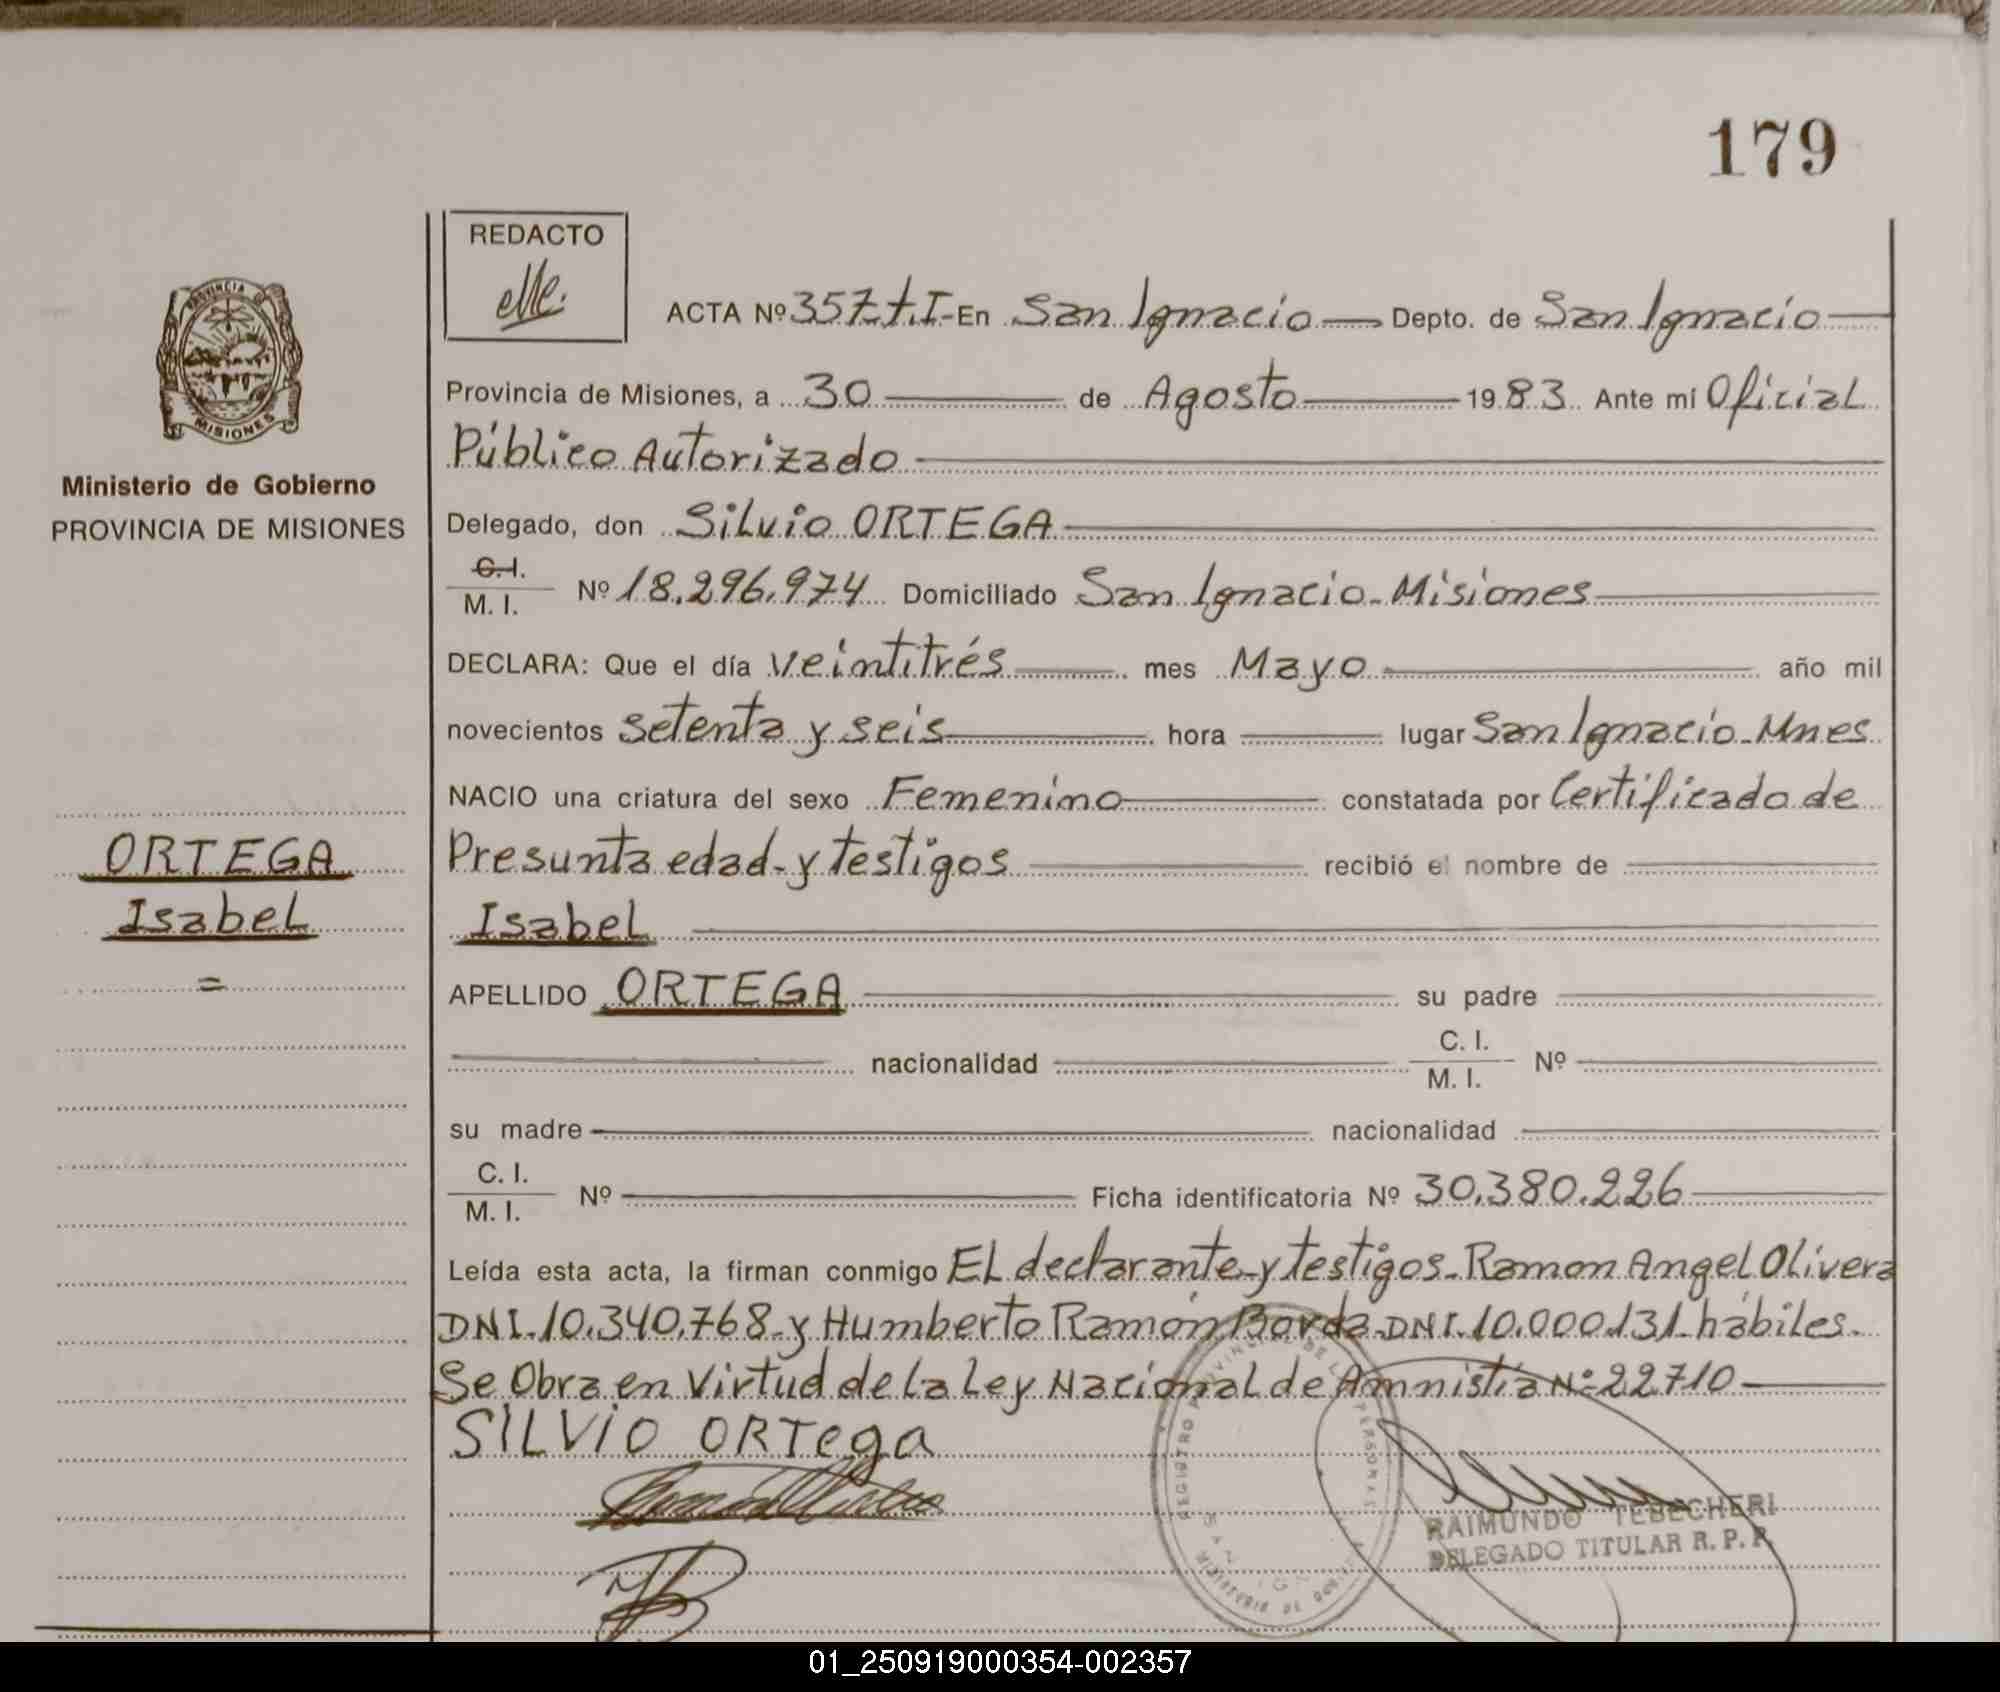 179
REDACTO
ACTA Nº 357 t.I - En San Ignacio — Depto. de San Ignacio —
Provincia de Misiones, a 30 — de Agosto — 1983 Ante mí Oficial
Público Autorizado —
Delegado, don Silvio ORTEGA —
C.I.
M. I. Nº 18.296.974 Domiciliado San Ignacio - Misiones —
DECLARA: Que el día veintitrés — mes Mayo — año mil
novecientos setenta y seis — hora — lugar San Ignacio - Mnes
NACIO una criatura del sexo Femenino — constatada por Certificado de
Presunta edad - y testigos — recibió el nombre de —
Isabel —
APELLIDO ORTEGA — su padre —
— nacionalidad — C. I.
M. I. Nº —
su madre — nacionalidad —
C. I.
M. I. Nº — Ficha identificatoria Nº 30.380.226 —
Leída esta acta, la firman conmigo El declarante - y testigos - Ramon Angel Olivera
DNI. 10.340.768 - y Humberto Ramón Borda - DNI. 10.000.131 - hábiles.
Se Obra en Virtud de la Ley Nacional de Amnistía Nº 22710 —
SILVIO ORTega
RAIMUNDO TEBECHERI
DELEGADO TITULAR R. P. P.
REGISTRO PROVINCIAL DE LAS PERSONAS
PROVINCIA DE
MISIONES
Ministerio de Gobierno
PROVINCIA DE MISIONES
ORTEGA
Isabel
=
01_250919000354-002357